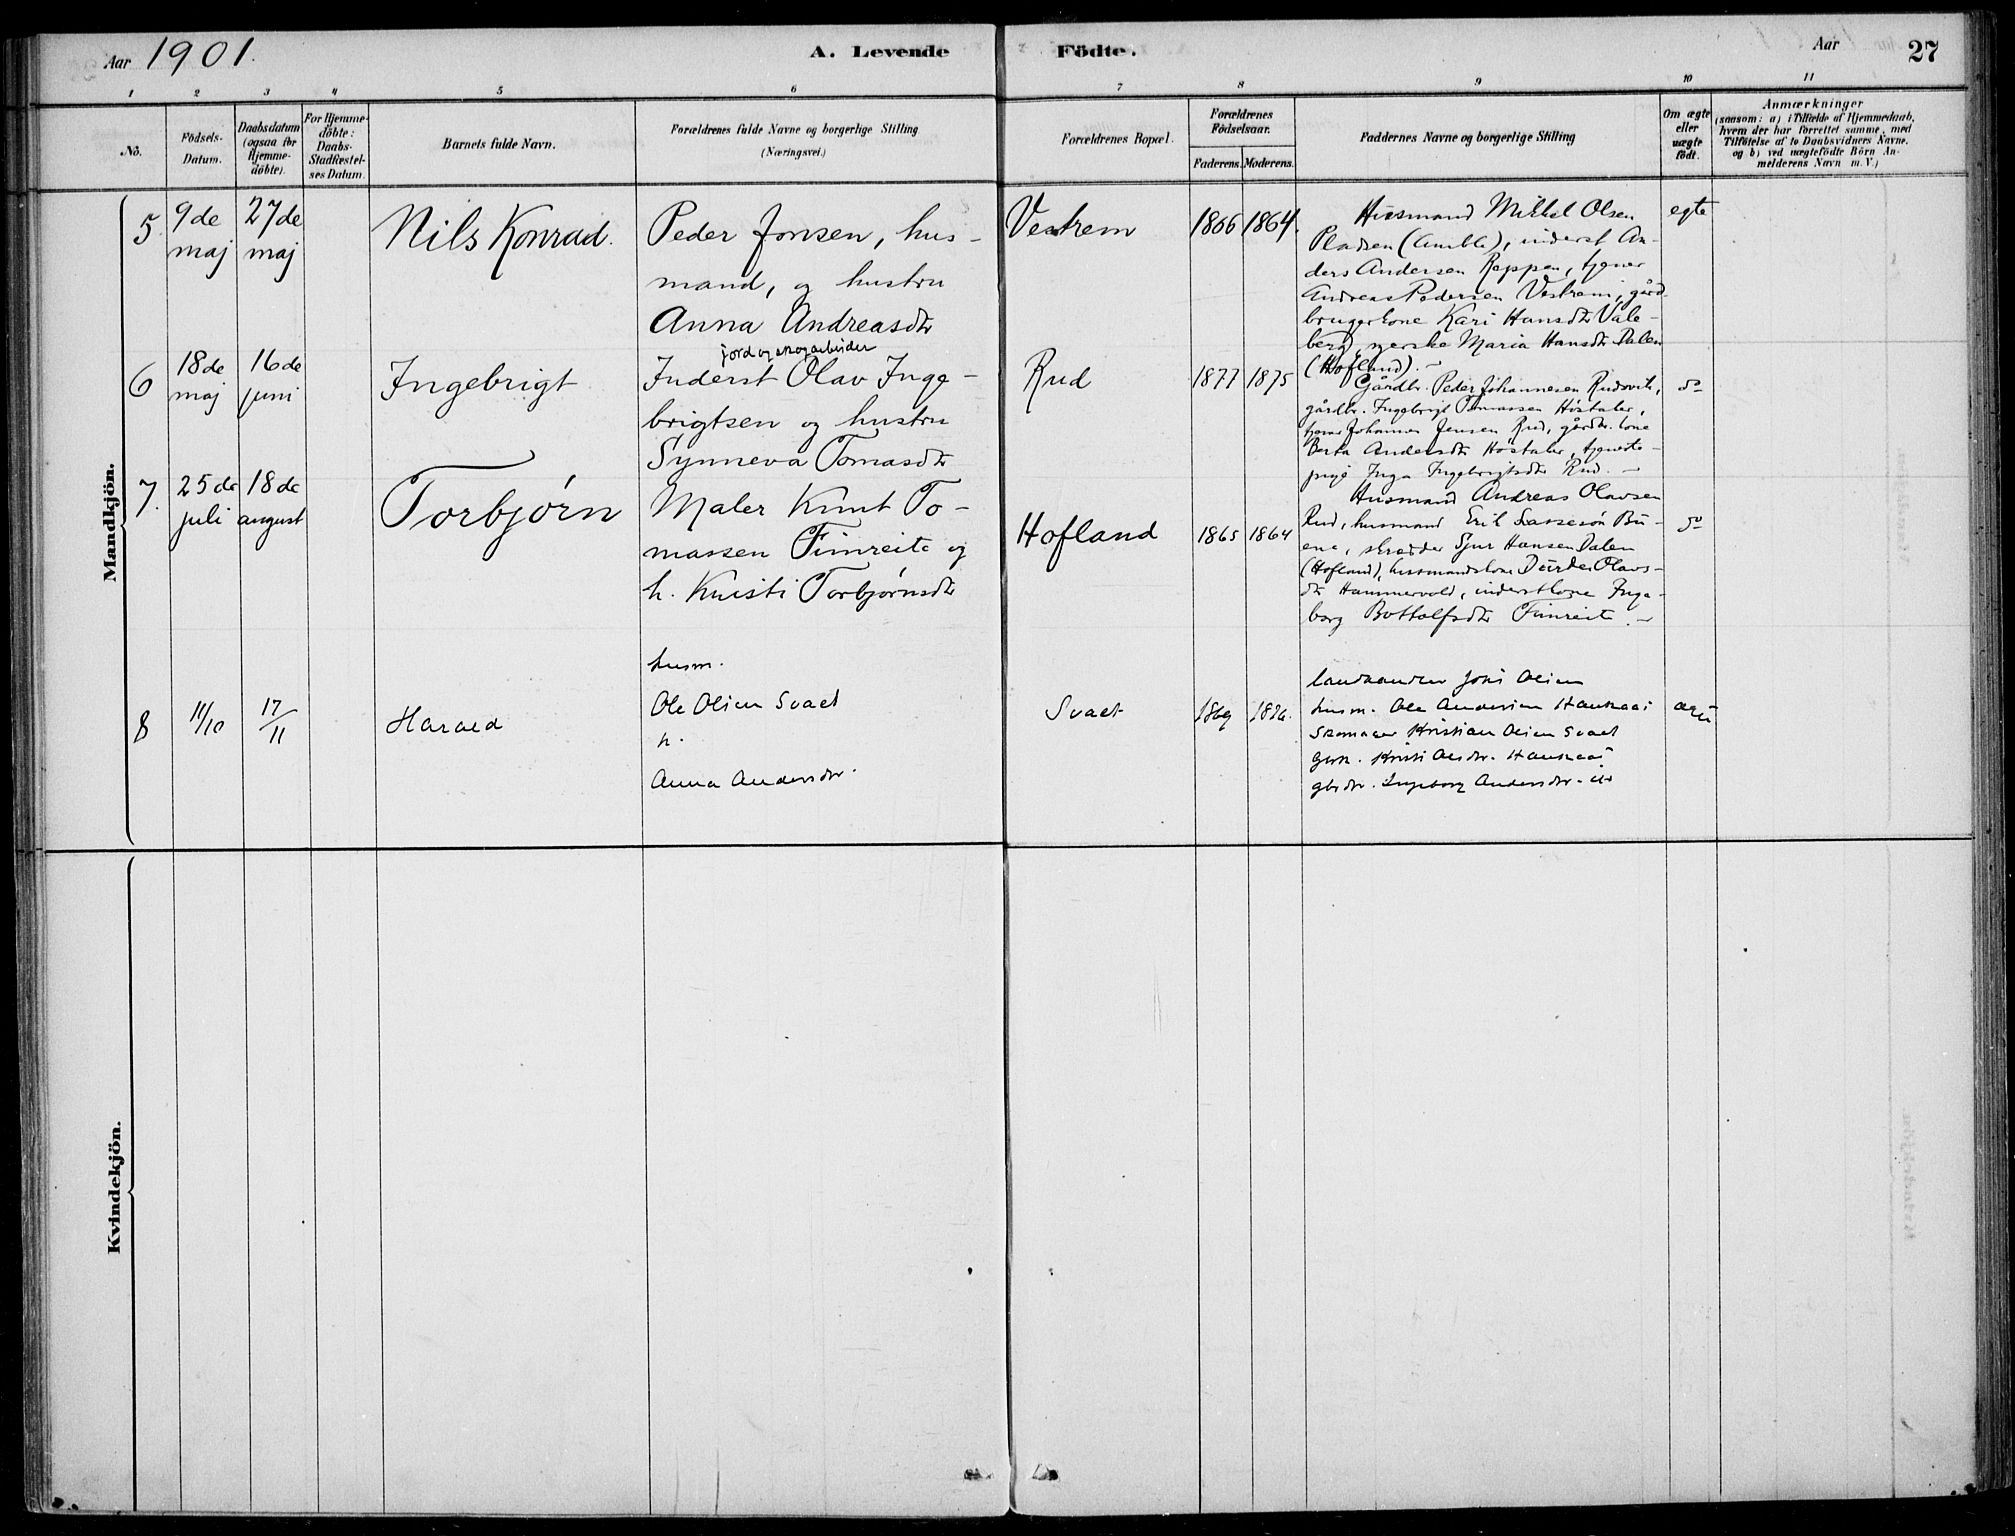 Aar 1901.
A. Levende Födte.
Aar
27
1 2 3 4 5 6 7 8 9 10 11
No.
Födsels-
Datum.
Daabsdatum
(ogsaa for
Hjemme-
döbte).
For Hjemme-
döbte:
Daabs-
Stadfæstel-
ses Datum.
Barnets fulde Navn.
Forældrenes fulde Navne og borgerlige Stilling
(Næringsvei.)
Forældrenes Bopæl.
Forældrenes
Födselsaar.
Faderens. Moderens.
Faddernes Navne og borgerlige Stilling
Om ægte
eller
uægte
födt.
Anmærkninger
(saasom: a) i Tilfælde af Hjemmedaab,
hvem der har forrettet samme, med
Tilföielse af to Daabsvidners Navne,
og b) ved uægtefödte Börn An-
melderens Navn m. V.)
Mandkjön.
5.
9de
maj
27de
maj
Nils Konrad.
Peder Jonsen, hus-
mand, og hustru
Anna Andreasdtr
Vestrem
1866
1864.
Husmand Mikkel Olsen
Pladsen (Amble), inderst An-
ders Andersen Reppen, tjener
Andreas Pedersen Vestrem, gård-
brugerkone Kari Hansdtr Vale-
berg, Maria Hansdtr Dalen
(Hofland).
egte
6
18de
maj
16de
juni
Ingebrigt
jord og skogarbeider
Inderst Olav Inge-
brigtsen og hustru
Synneva Tomasdtr
Rud
1877
1875
Gårdbr. Peder Johannesen Rudsvik,
gårdbr. Ingebrigt Tomassen Høstaker,
tjener Johannes Jensen Rud, gårdbr. kone
Berta Andersdtr Høstaker, tjeneste-
pige Inga Ingebrigtsdtr Rud.
do
7.
25de
juli
18de
august
Torbjørn
Maler Knut To-
massen Fimreite og
h. Kristi Torbjørnsdtr
Hofland
1865
1864
Husmand Andreas Olavsen
Rud, husmand Erik Lassesøn Bu-
ene, skredder Sjur Hansen Dalen
(Hofland), husmandskone Dårdei Olavs-
dtr Hammervold, inderstkone Inge-
borg Bottolfsdtr Fimreite.
do
8
11/10
17/11
Harald
husm.
Ole Olsen Svaet
h.
Anna Andersdr.
Svaet
1869
1876.
Joni Olsen
husm. Ole Andersen Haukaas
Skomager Kristian Olsen Svaet
Kristi Olsdr. Haukaas
gbrdr. Ingeborg Andersdr.
Kvindekjön.